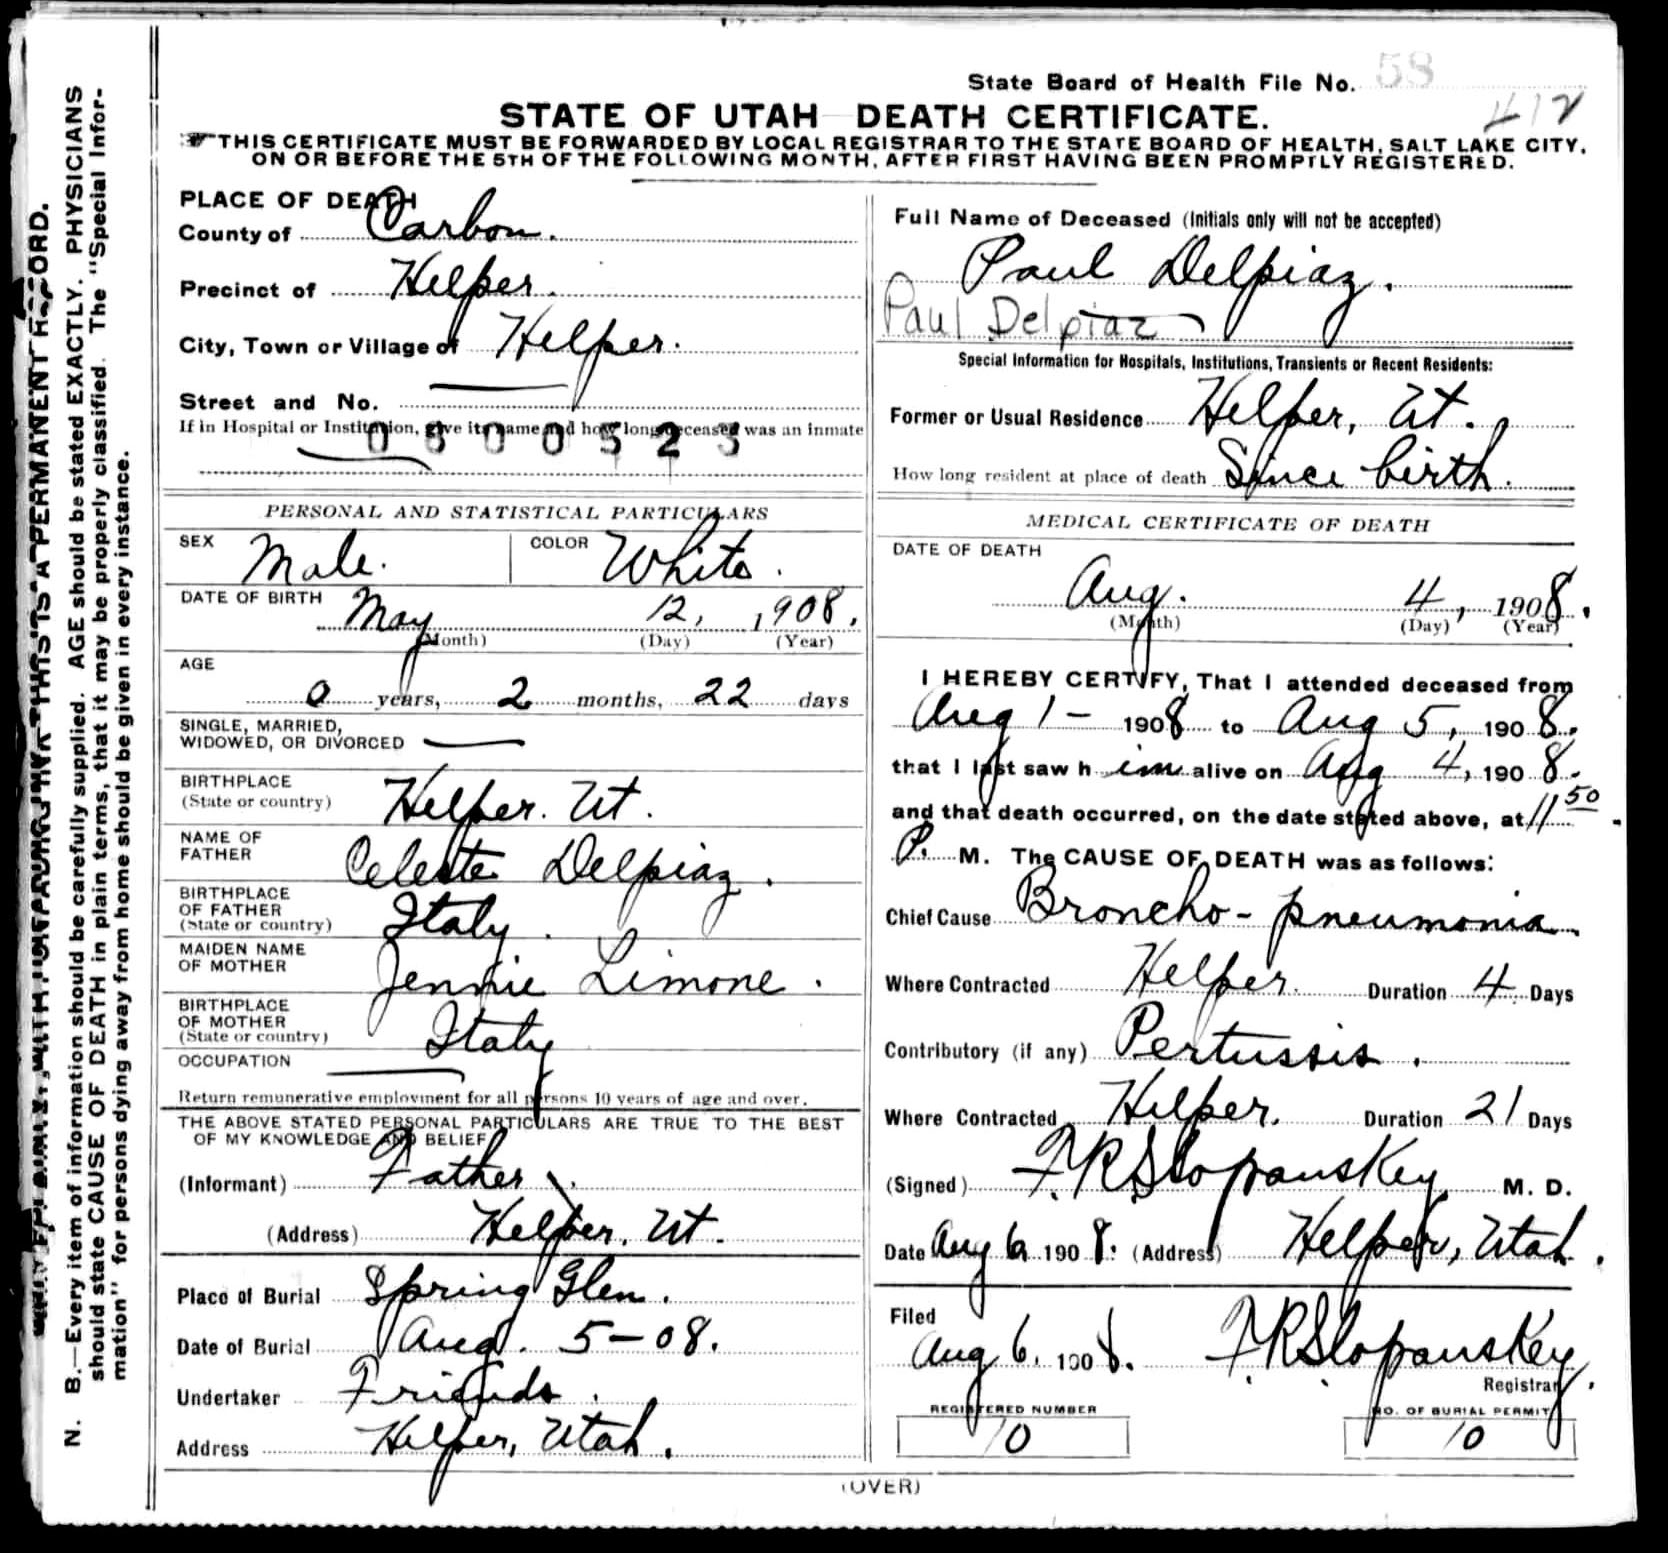 State Board of Health File No. 58
412
STATE OF UTAH DEATH CERTIFICATE.
THIS CERTIFICATE MUST BE FORWARDED BY LOCAL REGISTRAR TO THE STATE BOARD OF HEALTH, SALT LAKE CITY,
ON OR BEFORE THE 5TH OF THE FOLLOWING MONTH, AFTER FIRST HAVING BEEN PROMPTLY REGISTERED.
PLACE OF DEATH
County of Carbon.
Precinct of Helper.
City, Town or Village of Helper.
Street and No.
If in Hospital or Institution, give its name and how long deceased was an inmate
PERSONAL AND STATISTICAL PARTICULARS
SEX Male. COLOR White.
DATE OF BIRTH May 12, 1908.
(Month) (Day) (Year)
AGE
0 years, 2 months, 22 days
SINGLE, MARRIED,
WIDOWED, OR DIVORCED
BIRTHPLACE
(State or country) Helper. Ut.
NAME OF
FATHER Celeste Delpiaz.
BIRTHPLACE
OF FATHER
(State or country) Italy.
MAIDEN NAME
OF MOTHER Jennie Limone.
BIRTHPLACE
OF MOTHER
(State or country) Italy
OCCUPATION
Return remunerative employment for all persons 10 years of age and over.
THE ABOVE STATED PERSONAL PARTICULARS ARE TRUE TO THE BEST
OF MY KNOWLEDGE AND BELIEF
(Informant) Father
(Address) Helper, Ut.
Place of Burial Spring Glen.
Date of Burial Aug. 5-08.
Undertaker Friends.
Address Helper, Utah.
Full Name of Deceased (Initials only will not be accepted)
Paul Delpiaz.
Paul Delpiaz
Special Information for Hospitals, Institutions, Transients or Recent Residents:
Former or Usual Residence Helper, Ut.
How long resident at place of death Since birth.
MEDICAL CERTIFICATE OF DEATH
DATE OF DEATH
Aug. 4, 1908.
(Month) (Day) (Year)
I HEREBY CERTIFY, That I attended deceased from
Aug 1- 1908 to Aug 5, 1908.
that I last saw him alive on Aug 4, 1908.
and that death occurred, on the date stated above, at 11 50
P. M. The CAUSE OF DEATH was as follows:
Chief Cause Broncho-pneumonia.
Where Contracted Helper. Duration 4 Days
Contributory (if any) Pertussis.
Where Contracted Helper. Duration 21 Days
(Signed) F.R Slopanskey M. D.
Date Aug 6 1908. (Address) Helper, Utah.
Filed
Aug 6, 1908. F.R Slopanskey
Registrar.
REGISTERED NUMBER
10
NO. OF BURIAL PERMIT
10
(OVER)
N. B.—Every item of information should be carefully supplied. AGE should be stated EXACTLY. PHYSICIANS
should state CAUSE OF DEATH in plain terms, that it may be properly classified. The "Special Infor-
mation" for persons dying away from home should be given in every instance.